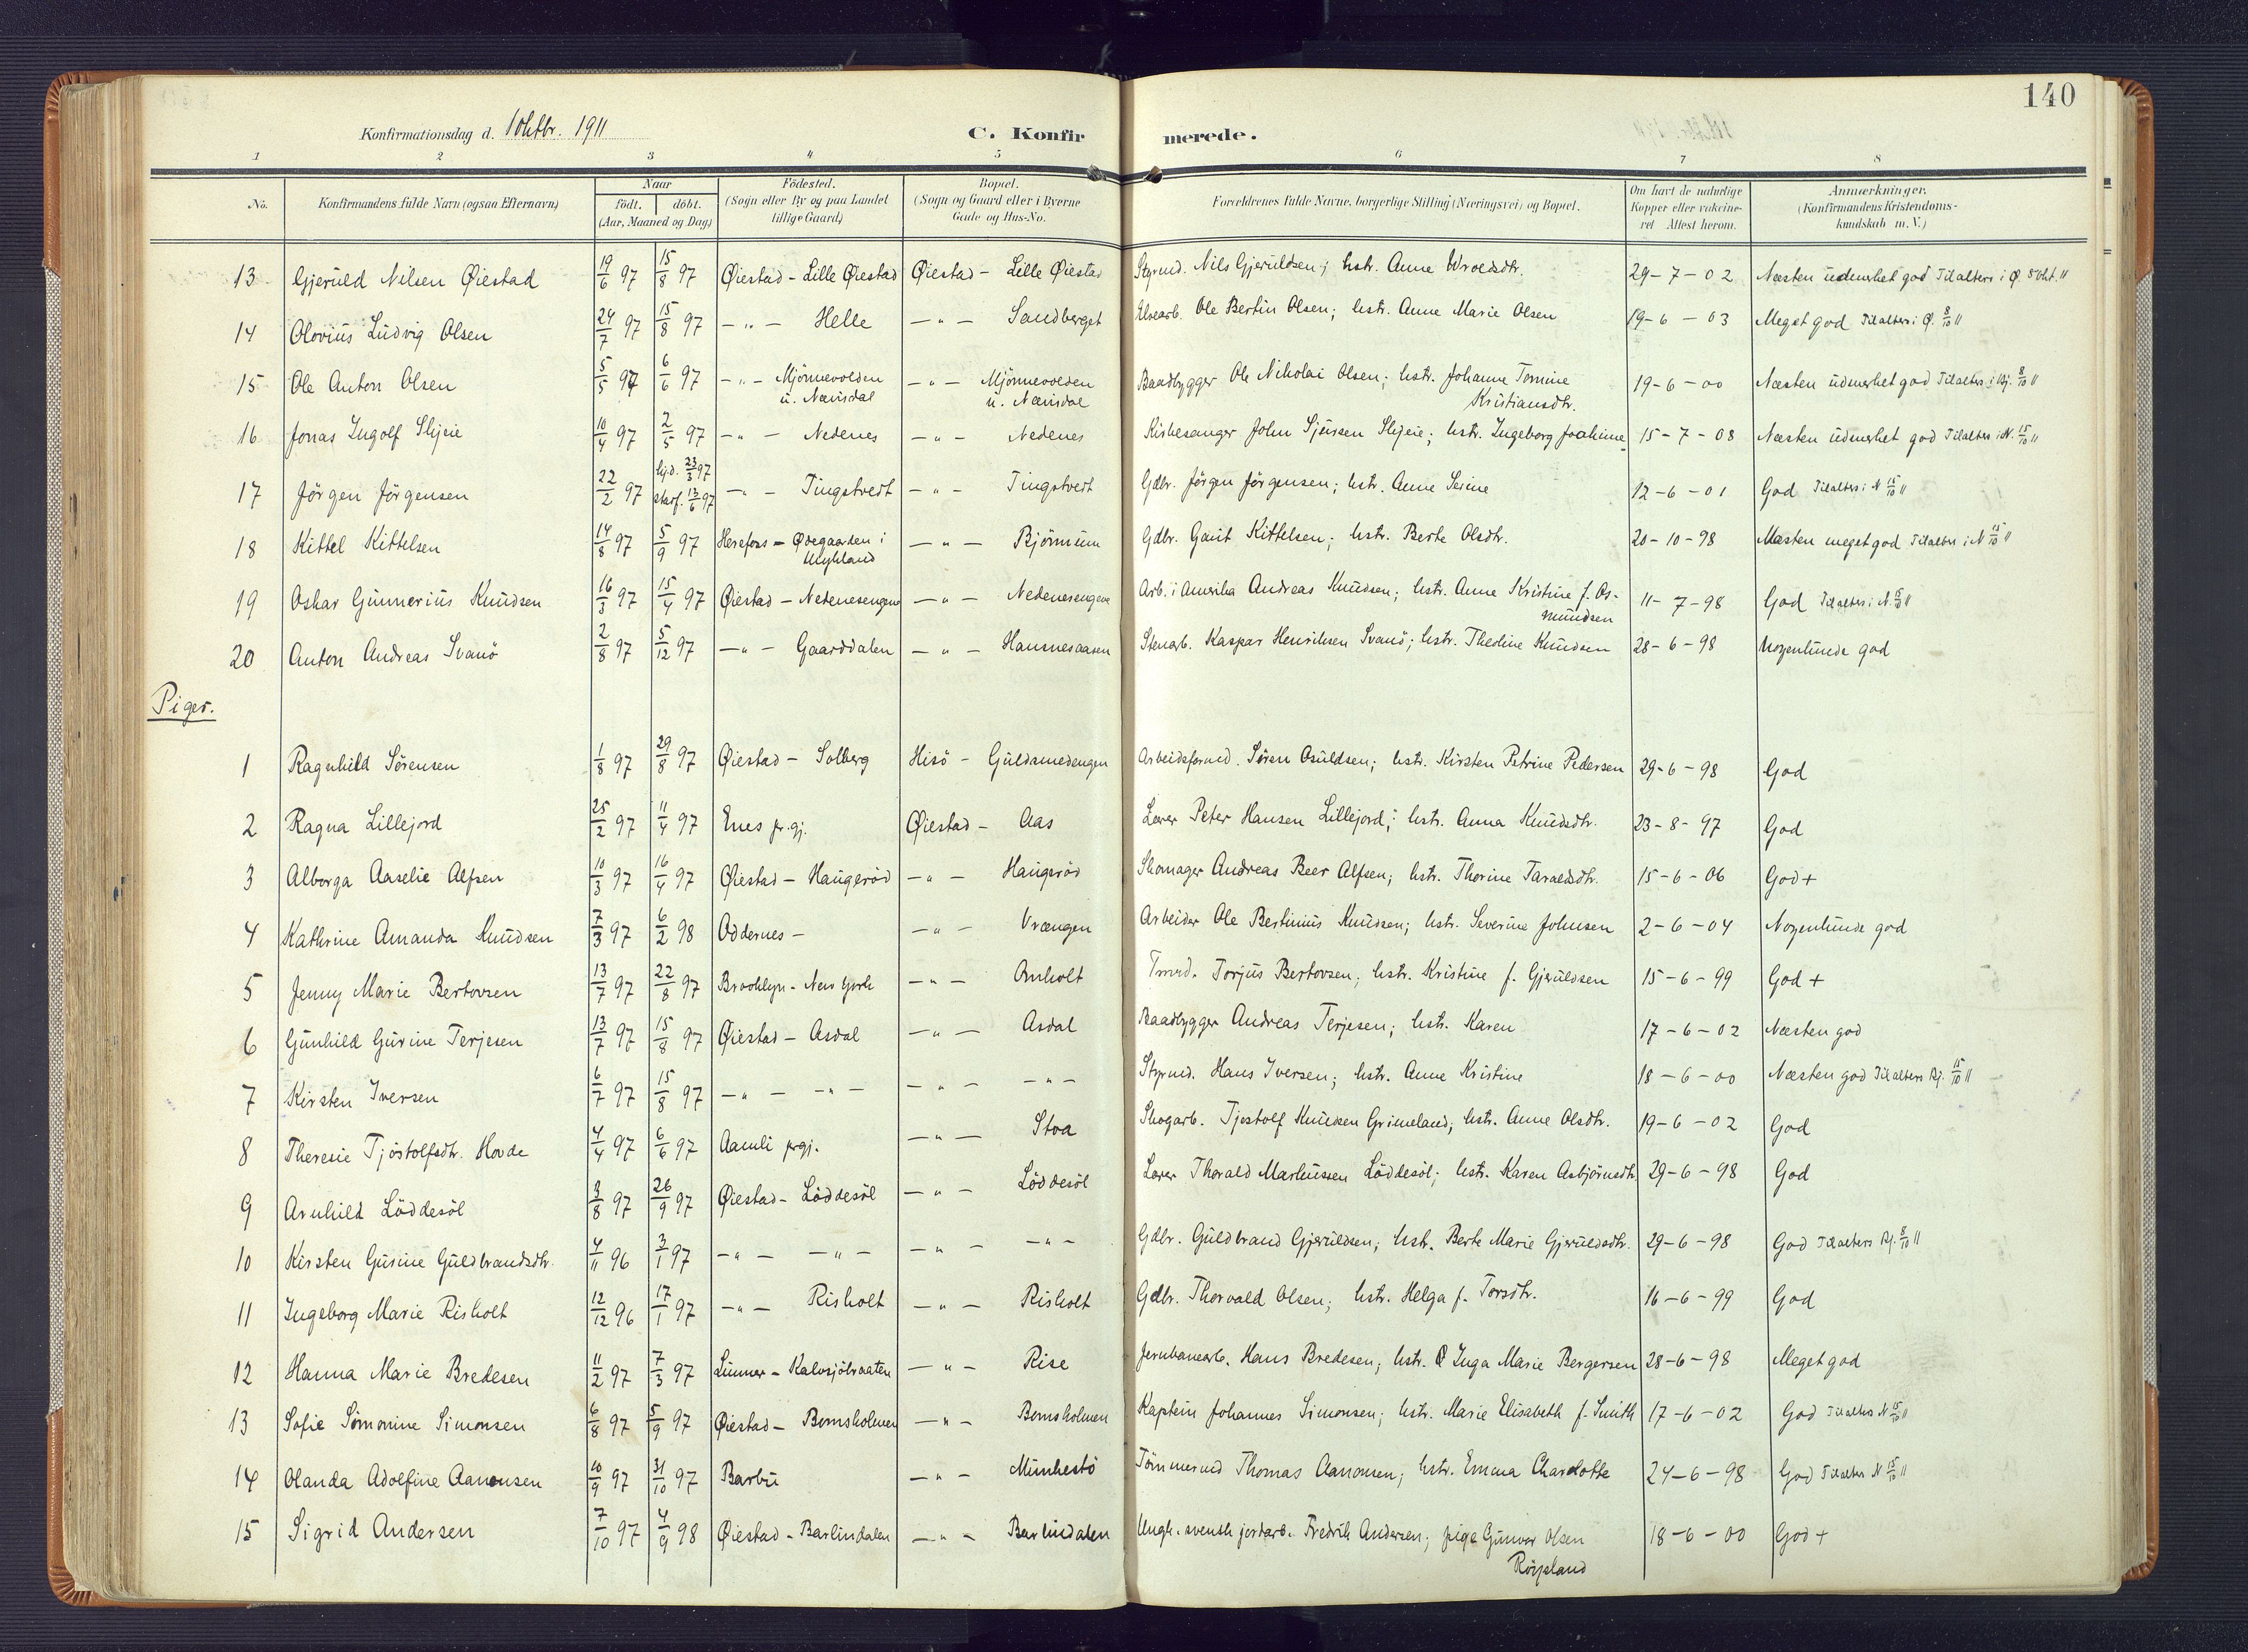 140
Konfirmationsdag d. 1 oktbr. 1911 C. Konfirmerede.
1 2 3 4 5 6 7 8
No. Konfirmandens fulde Navn (ogsaa Efternavn) Naar født. døbt. (Aar, Maaned og Dag) Födested. (Sogn eller By og paa Landet tillige Gaard) Bopæl. (Sogn og Gaard eller i Byerne Gade og Hus-No. Forældrenes fulde Navne, borgerlige Stilling (Næringsvei) og Bopæl. Om havt de naturlige Kopper eller vakcineret Attest herom. Anmærkninger. (Konfirmandens Kristendomskundskab m. V.)
13 Gjeruld Nilsen Øiestad 19/6 97 15/8 97 Øiestad - Lille Øiestad Øiestad - Lille Øiestad Styrmd. Nils Gjeruldsen; hstr. Anne Wroldsdtr. 29-7-02 Næsten udmerket god Til alters i Ø. 8 okt. 11
14 Olovius Ludvig Olsen 24/7 97 15/8 97 -"- Helle -"- Sandberget Ole Bertin Olsen; hstr. Anne Marie Olsen 19-6-03 Meget god Til alters i Ø. 8/10 11
15 Ole Anton Olsen 5/5 97 6/6 97 -"- Mjönnevolden -"- Mjönnevolden Baadbygger Ole Nikolai Olsen; hstr. Johanne Tomine 19-6-00 Næsten udmerket god Til alters i Bj. 8/10 11
u. Nævisdal u. Nævisdal Kristiansdtr.
16 Jonas Ingolf Skjeie 10/4 97 2/5 97 -"- Nedenes -"- Nedenes Kirkesanger John Sjursen Skjeie; hstr. Ingeborg Joakime 15-7-08 Næsten udmerket god Til alters i N. 15/10 11
17 Jörgen Jörgensen 22/2 97 hjd. 23/3 97 stadf. 13/6 97 -"- Tingstvedt -"- Tingstvedt Gdbr. Jörgen Jörgensen; hstr. Anne Serine 12-6-01 God Til alters i N 15/10 11
18 Kittel Kittelsen 14/8 97 5/9 97 Herefoss - Ødegaarden i -"- Bjørnum Gdbr. Gaut Kittelsen; hstr. Berte Olsdtr. 20-10-98 Næsten meget god Til alters i N 15/10 11
Mykland
19 Oskar Gunnerius Knudsen 16/3 97 15/4 97 Øiestad - Nedenesengene -"- Nedenesengene Arb. i Amerika Andreas Knudsen; hstr. Anne Kristine f. Os- 11-7-98 God Til alters i N. 15/10 11
mundsen
20 Anton Andreas Svanö 2/8 97 5/12 97 -"- Gaarddalen -"- Hausnesaasen Stenarb. Kaspar Henriksen Svanö; hstr. Theoline Knudsen 28-6-98 Nogenlunde god
Piger.
1 Ragnhild Sörensen 1/8 97 29/8 97 Øiestad - Solberg Hisö - Guldsmedengen Arbeidsformd. Sören Osuldsen; hstr. Kirsten Petrine Pedersen 29-6-98 God
2 Ragna Lillejord 25/2 97 11/4 97 Enes pr.gj. Øiestad - Aas Lærer Peter Hansen Lillejord; hstr. Anna Knudsdtr. 23-8-97 God
3 Alborga Aaselie Alfsen 10/3 97 16/4 97 Øiestad - Haugeröd -"- Haugeröd Skomager Andreas Beer Alfsen; hstr. Thorine Taraldsdtr. 15-6-06 God +
4 Kathrine Amanda Knudsen 7/3 97 6/2 98 Oddernes - -"- Vrængen Arbeider Ole Bertinius Knudsen; hstr. Severine Johnsen 2-6-04 Nogenlunde god
5 Jenny Marie Bertovsen 13/7 97 22/8 97 Brooklyn - New York -"- Omholt Tmrd. Torjus Bertovsen; hstr. Kristine f. Gjeruldsen 15-6-99 God +
6 Gunhild Gurine Terjesen 13/7 97 15/8 97 Øiestad - Asdal -"- Asdal Baadbygger Andreas Terjesen; hstr. Karen 17-6-02 Næsten god
7 Kirsten Iversen 6/7 97 15/8 97 -"- -"- -"- -"- Styrmd. Hans Iversen; hstr. Anne Kristine 18-6-00 Næsten god Til alters Bj. 15/10 11
8 Theresie Tjöstolfsdtr. Hovde 4/4 97 6/6 97 Aamli prgj. -"- Stoa Skogarb. Tjostolf Knudsen Grimeland; hstr. Anne Olsdtr. 19-6-02 God
9 Arnhild Löddesöl 3/8 97 26/9 97 Øiestad - Löddesöl -"- Löddesöl Lærer Thorald Markussen Löddesöl; hstr. Karen Asbjörnsdtr. 29-6-98 God
10 Kirsten Gurine Guldbrandsdtr. 4/11 96 3/1 97 -"- -"- -"- -"- Gdbr. Guldbrand Gjeruldsen; hstr. Berte Marie Gjeruldsdtr. 29-6-98 God Til alters Bj. 8/10 11
11 Ingeborg Marie Risholt 12/12 96 17/1 97 -"- Risholt -"- Risholt Gdbr. Thorvald Olsen; hstr. Helga f. Torsdtr. 16-6-99 God
12 Hanna Marie Bredesen 11/2 97 7/3 97 Lunner - Kalvsjöbraaten -"- Rise Jernbanearb. Hans Bredesen; hstr. Inga Marie Bergersen 28-6-98 Meget god
13 Sofie Simonine Simonsen 6/8 97 5/9 97 Øiestad - Bomsholmen -"- Bomsholmen Kaptein Johannes Simonsen; hstr. Marie Elisabeth f. Smith 17-6-02 God Til alters N 15/10 11
14 Olanda Adolfine Aanonsen 10/9 97 31/10 97 Barbu -"- Munkestö Tömmermd Thomas Aanonsen; hstr. Emma Charlotte 24-6-98 God Til alters N 15/10 11
15 Sigrid Andersen 7/10 97 4/9 98 Øiestad - Barlindalen -"- Barlindalen Ungk. svensk jordarb. Fredrik Andersen; pige Gunvor Olsen 18-6-00 God +
Röysland